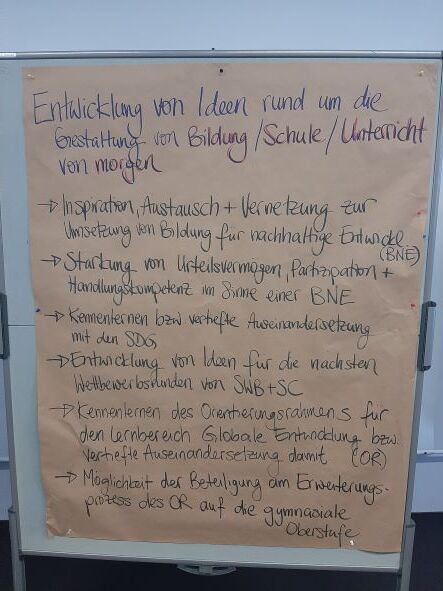 Entwicklung von Ideen rund um die
Gestaltung von Bildung/Schule/Unterricht
von morgen
→ Inspiration, Austausch + Vernetzung zur
Umsetzung von Bildung für nachhaltige Entwickl
(BNE)
→ Stärkung von Urteilsvermögen, Partizipation +
Handlungskompetenz im Sinne einer BNE
→ Kennenlernen bzw vertiefte Auseinandersetzung
mit den SDG
→ Entwicklung von Ideen für die nächsten
Wettbewerbsrunden von SWB+SC
→ Kennenlernen des Orientierungsrahmens für
den Lernbereich Globale Entwicklung bzw.
vertiefte Auseinandersetzung damit (OR)
→ Möglichkeit der Beteiligung am Erweiterungs-
prozess des OR auf die gymnasiale
Oberstufe